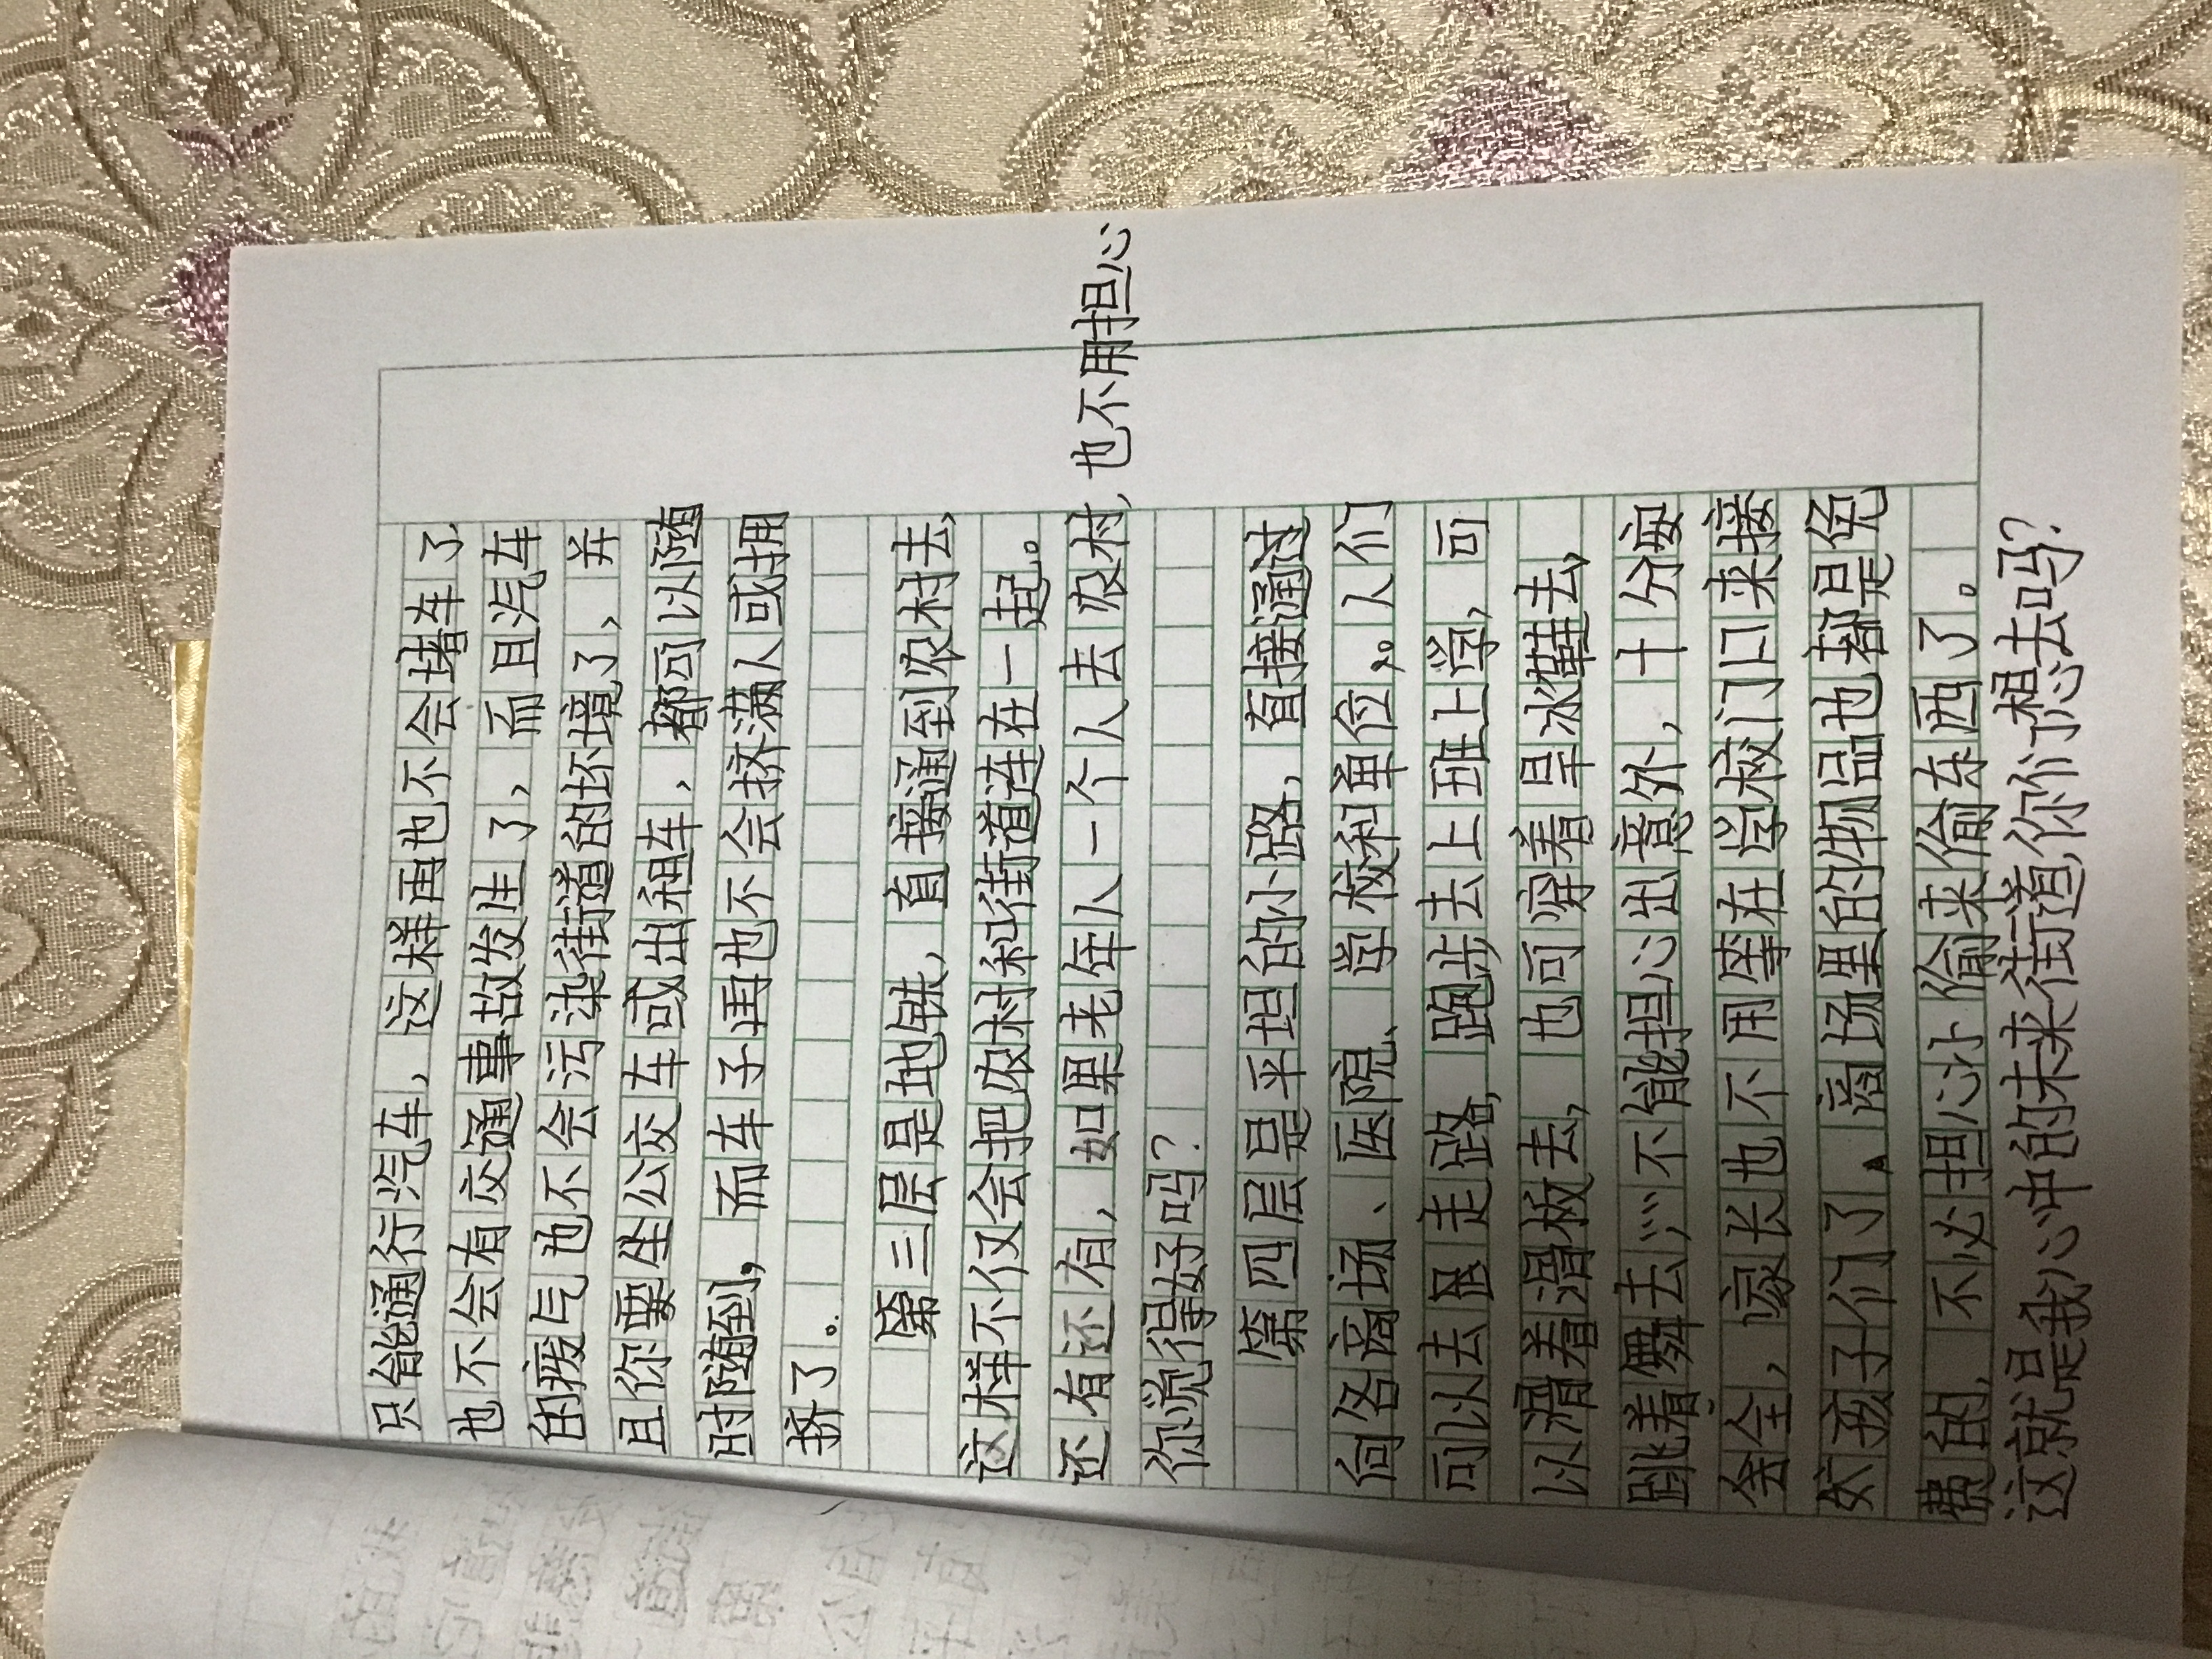 只能通行汽车，这样再也不会堵车了
也不会有交通事故发生了，而且汽车
的援气也不会污染街道的坏境了，并
且你要坐公交车或出租车，都可以随
时随到，而车子再也不会挤满人或拥
挤了。
第三层是地铁，直接通到农村去，
这样不仅会把农村和街道连在一起。
还有还有，如果老年人一个人去农村，也不用担心
你觉得好吗？
第四层是平坦的小路，直接通过
向各商场、医院、学校和单位。人们
可以去走路，跑步去上班上学，可
以滑着滑板去，也可穿着旱冰鞋去，
跳着舞去……不能担心出意外，十分安
全，家长也不用等在学校门口来接
孩子们了。商场里的物品也都是免
费的，不必担心小偷来偷东西了。
这就是我心中的未来街道你们想去吗？